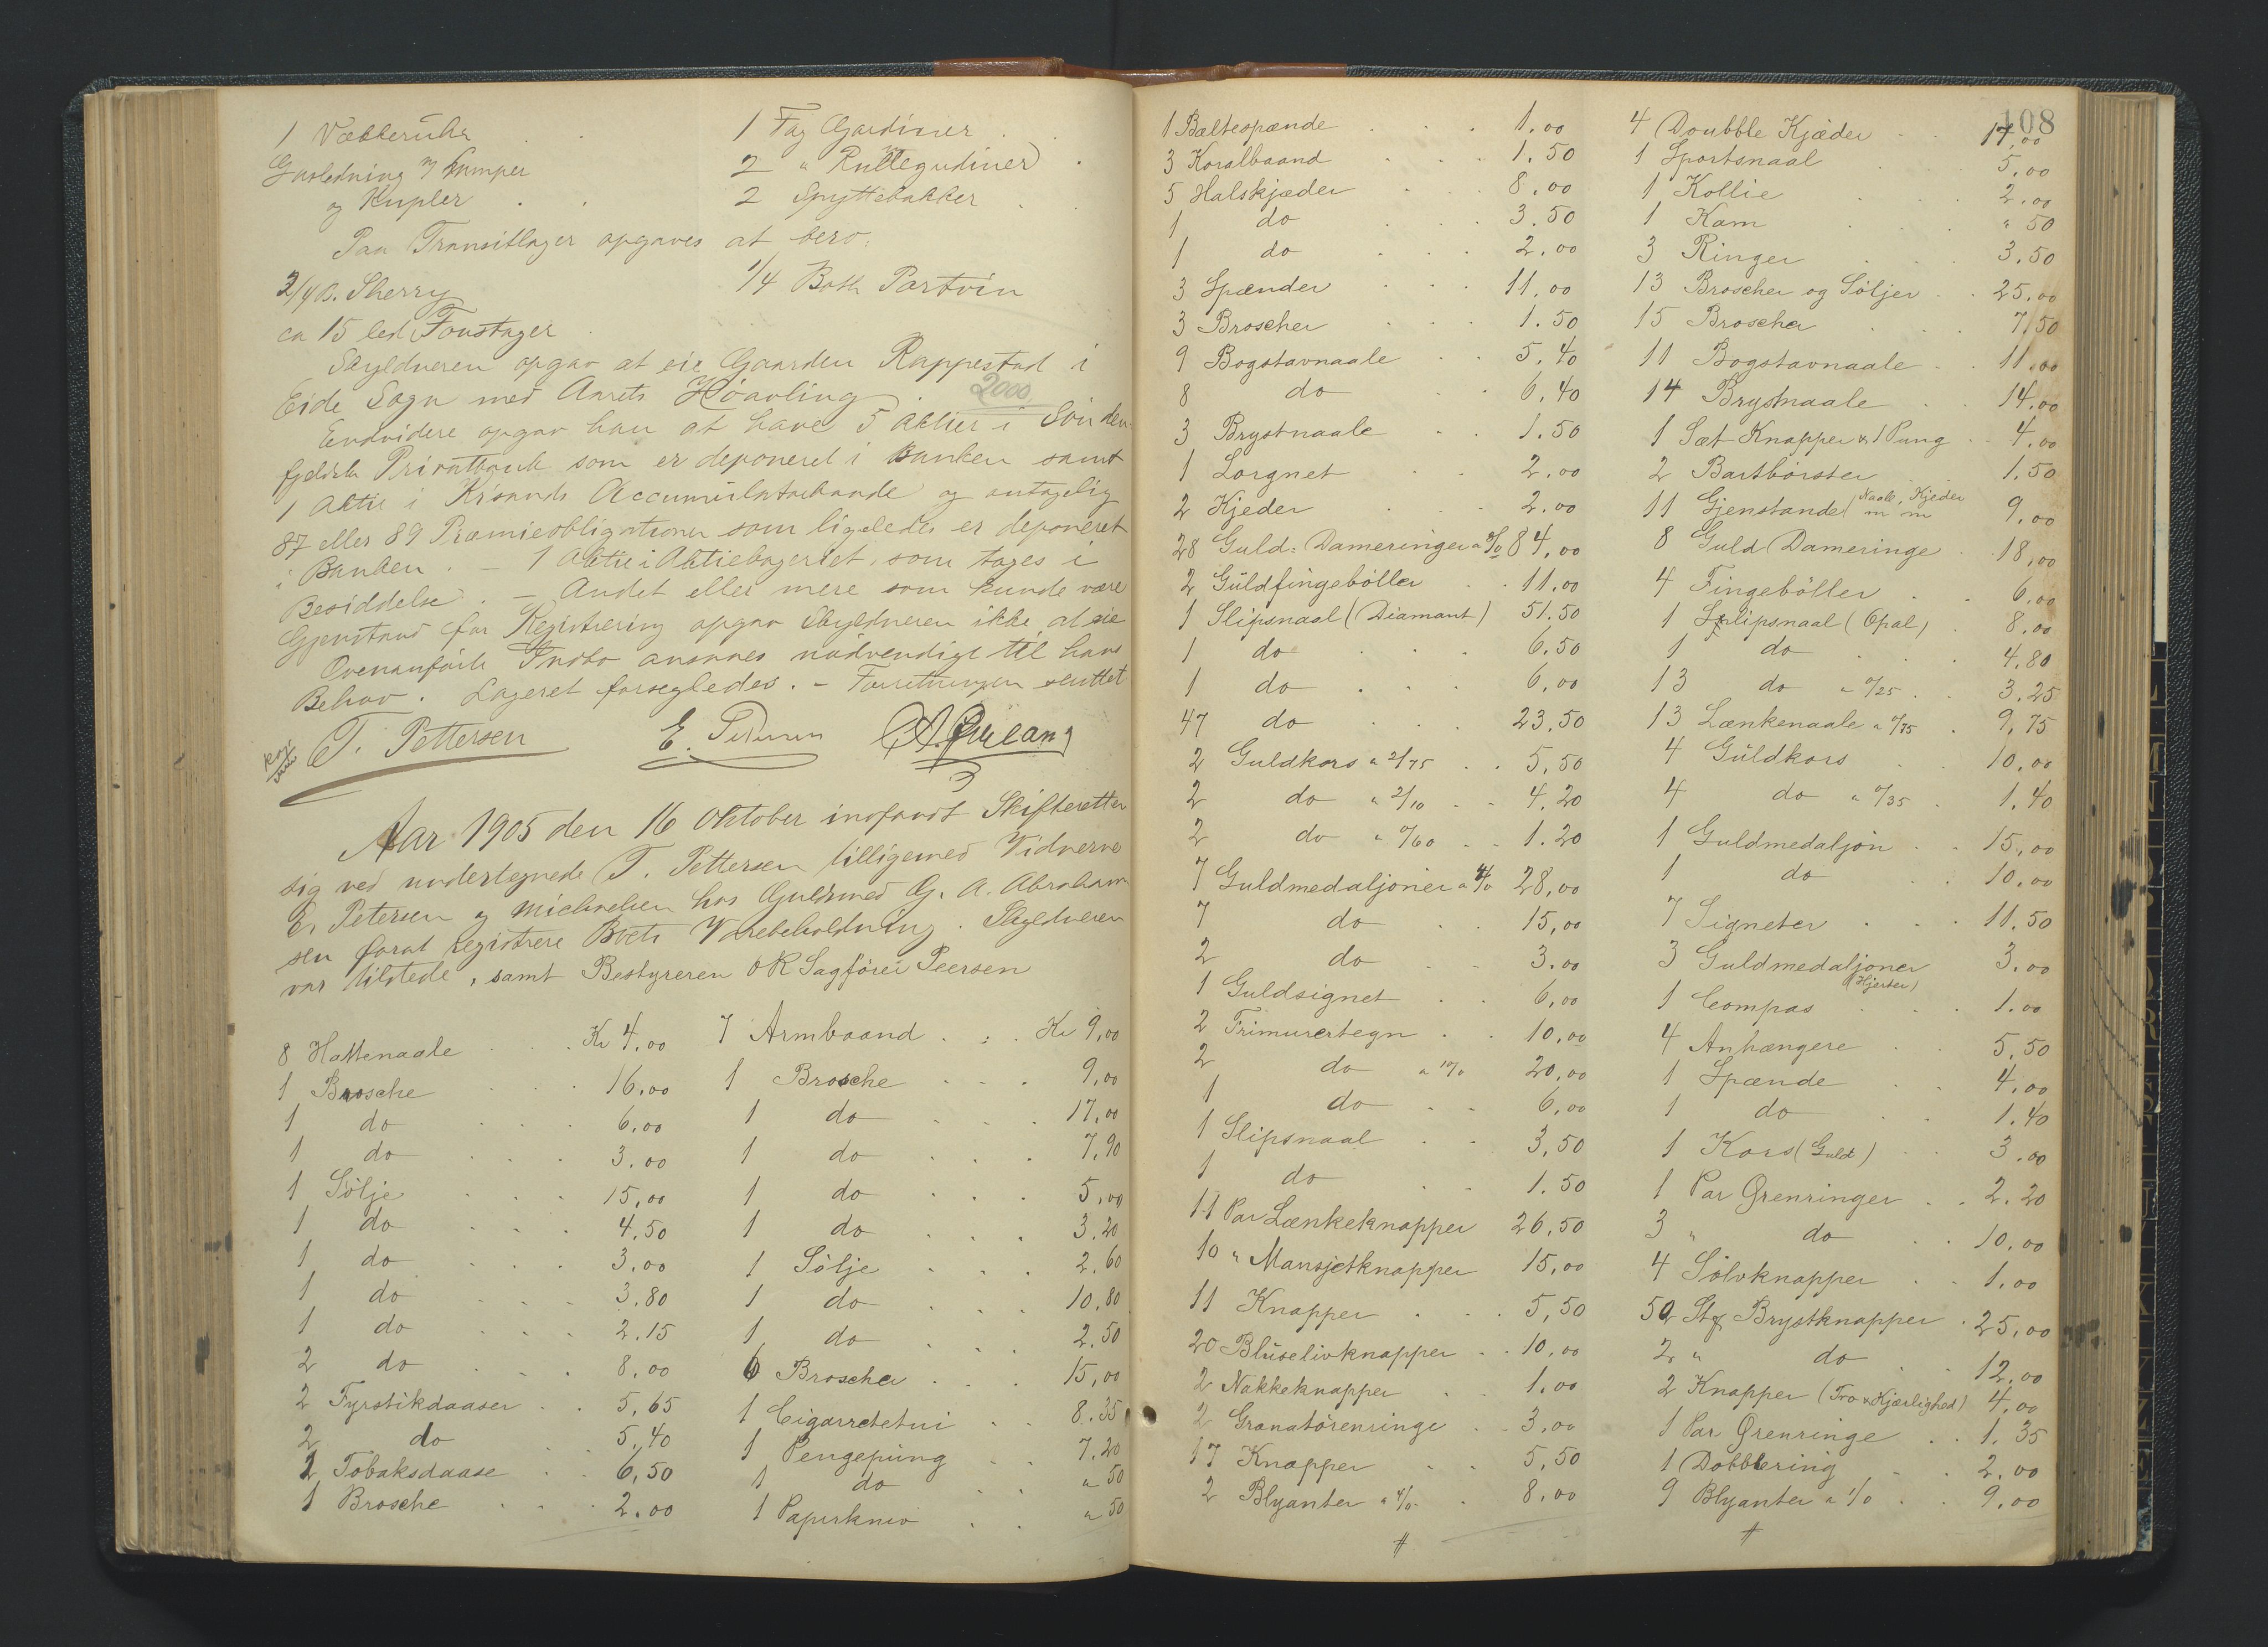 1 Vækkeruhr
Gasledning m/ Lamper
og Kupler
1 Fag Gardiner
2 " Rullegardiner
2 Spyttebakker
Paa Transitlager opgaves at bero:
2/4 B. Sherry
1/4 Bott. Portvin
ca 15 led. Foustager
Skyldneren opgav at eie Gaarden Rappestad i
Eide Sogn med Aarets Høavling
2000
Endvidere opgav han at have 5 Aktier i Sønden-
fjeldske Privatbank som er deponeret i Banken samt
1 Aktie i Kr'sands Accumulator og antagelig
87 eller 89 Præmieobligationer som ligeledes er deponeret
i Banken. - 1 Aktie i Aktiebageriet, som tages i
Besiddelse. - Andet eller mere som kunde være
Gjenstand for Registrering opgav Skyldneren ikke at eie
Ovenanførte Indbo ansaaes nødvendigt til hans
Behov. Lageret forsegledes. - Forretningen sluttet
T. Pettersen E. Petersen
Aar 1905 den 16 Oktober indfandt Skifteretten
sig ved undertegnede T. Pettersen tilligemed Vidnerne
E. Petersen og Michaelsen hos Guldsmed G. A. Abraham-
sen forat registrere Boets Varebeholdning. Skyldneren
var tilstede, samt Bestyreren OR Sagfører Peersen
8 Hattenaale Kr 4,00
1 Brosche 16,00
1 do 6,00
1 do 3,00
1 Sølje 15,00
1 do 4,50
1 do 3,00
1 do 3,80
1 do 2,15
2 do 8,00
2 Fyrstikdaaser 5,65
2 do 5,40
1 Tobaksdaase 6,50
1 Brosche 2,00
7 Armbaand Kr 9,00
1 Brosche 9,00
1 do 17,00
1 do 7,90
1 do 5,00
1 do 3,20
1 Sølje 2,60
1 do 10,80
1 do 2,50
6 Broscher 15,00
1 Cigarretetui 8,35
1 Pengepung 7,20
1 do " 50
1 Papirkniv " 50
108
1 Bæltespænde 1,00
3 Koralbaand 1,50
5 Halskjæder 8,00
1 do 3,50
1 do 2,00
3 Spænder 11,00
3 Broscher 1,50
9 Bogstavnaale 5,40
8 do 6,40
3 Brystnaale 1,50
1 Lorgnet 2,00
2 Kjeder 2,00
28 Guld: Dameringer a 3/0 84,00
2 Guldfingebøller 11,00
1 Slipsnaal (Diamant) 51,50
1 do 6,50
1 do 6,00
47 do 23,50
2 Guldkors a 2/75 5,50
2 do a 2/10 4,20
2 do a 0/60 1,20
7 Guldmedaljoner a 4/0 28,00
7 do 15,00
2 do 3,00
1 Guldsignet 6,00
2 Frimurertegn 10,00
2 do a 10/0 20,00
1 do 6,00
1 Slipsnaal 3,50
1 do 1,50
11 Par Lænkeknapper 26,50
10 " Mansjetknapper 15,00
11 Knapper 5,50
20 Bluselivknapper 10,00
2 Nakkeknapper 1,00
2 Granatørenringe 3,00
17 Knapper 5,50
2 Blyanter a 4/0 8,00
4 Doubble Kjæder 17,00
1 Sportsnaal 5,00
1 Kollie 2,00
1 Kam " 50
3 Ringer 3,50
13 Broscher og Søljer 25,00
15 Broscher 7,50
11 Bogstavnaale 11,00
14 Brystnaale 14,00
1 Sæt Knapper & 1 Pung 4,00
2 Bartbørster 1,50
11 Gjenstande (Naale, Kjeder m m 9,00
8 Guld Dameringe 18,00
4 Fingebøller 6,00
1 Slipsnaal (Opal) 8,00
1 do 4,80
13 do a 0/25 3,25
13 Lænkenaale a 0/75 9,75
4 Guldkors 10,00
4 do a 0/35 1,40
1 Guldmedaljon 15,00
1 do 10,00
7 Signeter 11,50
3 Guldmedaljoner (Hjerter) 3,00
1 Compas 1,00
4 Anhængere 5,50
1 Spænde 4,00
1 do 1,40
1 Kors (Guld) 3,00
1 Par Ørenringer 2,20
3 " do 10,00
4 Sølvknapper 1,00
50 Stk Brystknapper 25,00
2 " do 12,00
2 Knapper (Tro & Kjærlighed) 4,00
1 Par Ørenringe 1,35
1 Dobblering 2,00
9 Blyanter a 1/0 9,00